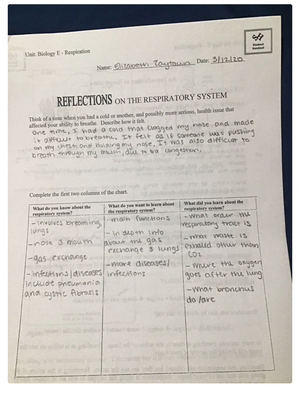 Unit: Biology E - Respiration
Name: Elizabeth Raytown Date: 3/12/20
REFLECTIONS ON THE RESPIRATORY SYSTEM
Think of a time when you had a cold or another, and possibly more serious, health issue that
affected your ability to breathe. Describe how it felt.
One time, I had a cold that clogged my nose and made
it difficult to breathe. It felt as if someone was pushing
on my chest and holding my nose. It was also difficult to
breath through my mouth, due to the congestion.
Complete the first two columns of the chart.
What do you know about the
respiratory system?
- involves breathing,
lungs
- nose & mouth
- gas exchange
- infections/diseases
include pneumonia
and cystic fibrosis
What do you want to learn about
the respiratory system?
- main functions
- in depth info
about the gas
exchange & lungs
- more diseases/
infections
What did you learn about the
respiratory system?
- What order the
respiratory tract is
- what waste is
exhaled other than
CO2
- Where the oxygen
goes after the lung
- What bronchus
do/are